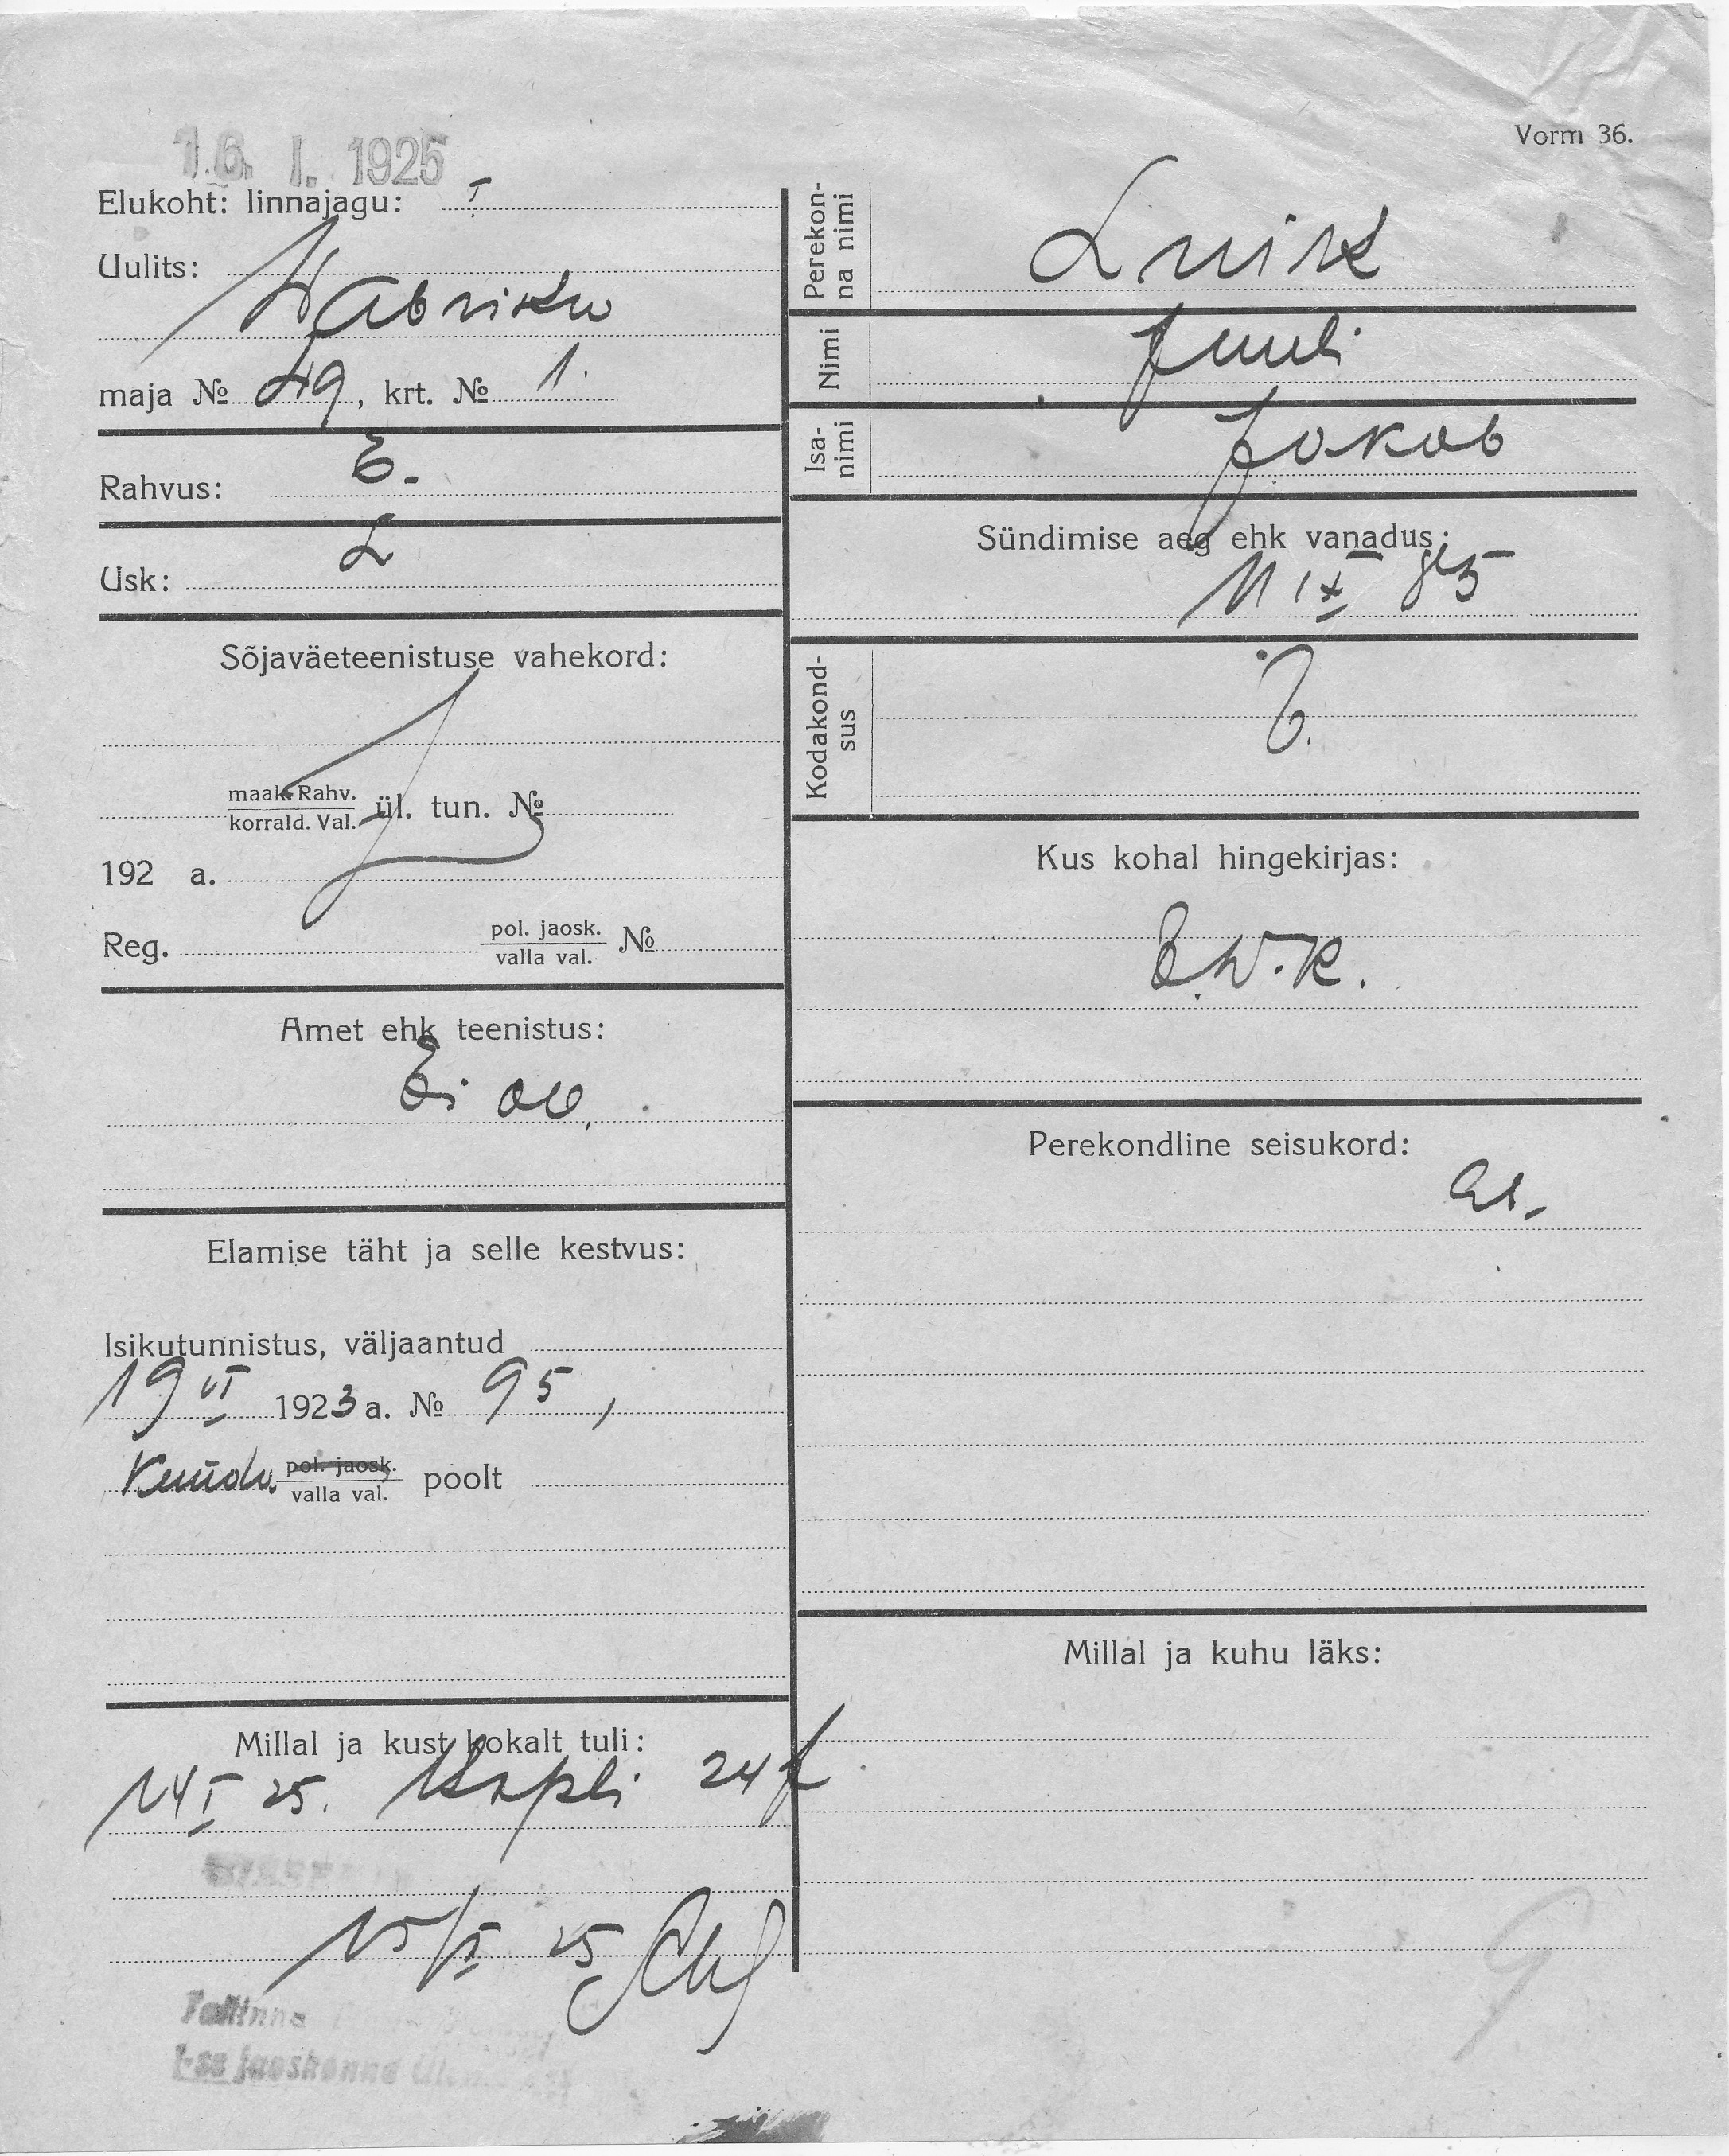 16. I. 1925
Vorm 36.
Elukoht: linnajagu: I
Uulits:
Wabriku
maja № 49, krt. № 1.
Rahvus: E.
Usk: L
Sõjaväeteenistuse vahekord:
maak. Rahv.
korrald. Val. ül. tun. №
192 a.
Reg. pol. jaosk.
valla val. №
Amet ehk teenistus:
Ei ole.
Elamise täht ja selle kestvus:
Isikutunnistus, väljaantud
19 VI 1923 a. № 95,
pol. jaosk.
valla val. poolt
Millal ja kust kokalt tuli:
14 I 25. Kopli 24
15/I 25
Tallinna
I-se jaoskonna
Perekon-
na nimi Luik
Nimi Juuli
Isa-
nimi Jakob
Sündimise aeg ehk vanadus:
11 IX 85
Kodakond-
sus E.
Kus kohal hingekirjas:
E. W. K.
Perekondline seisukord:
Millal ja kuhu läks: